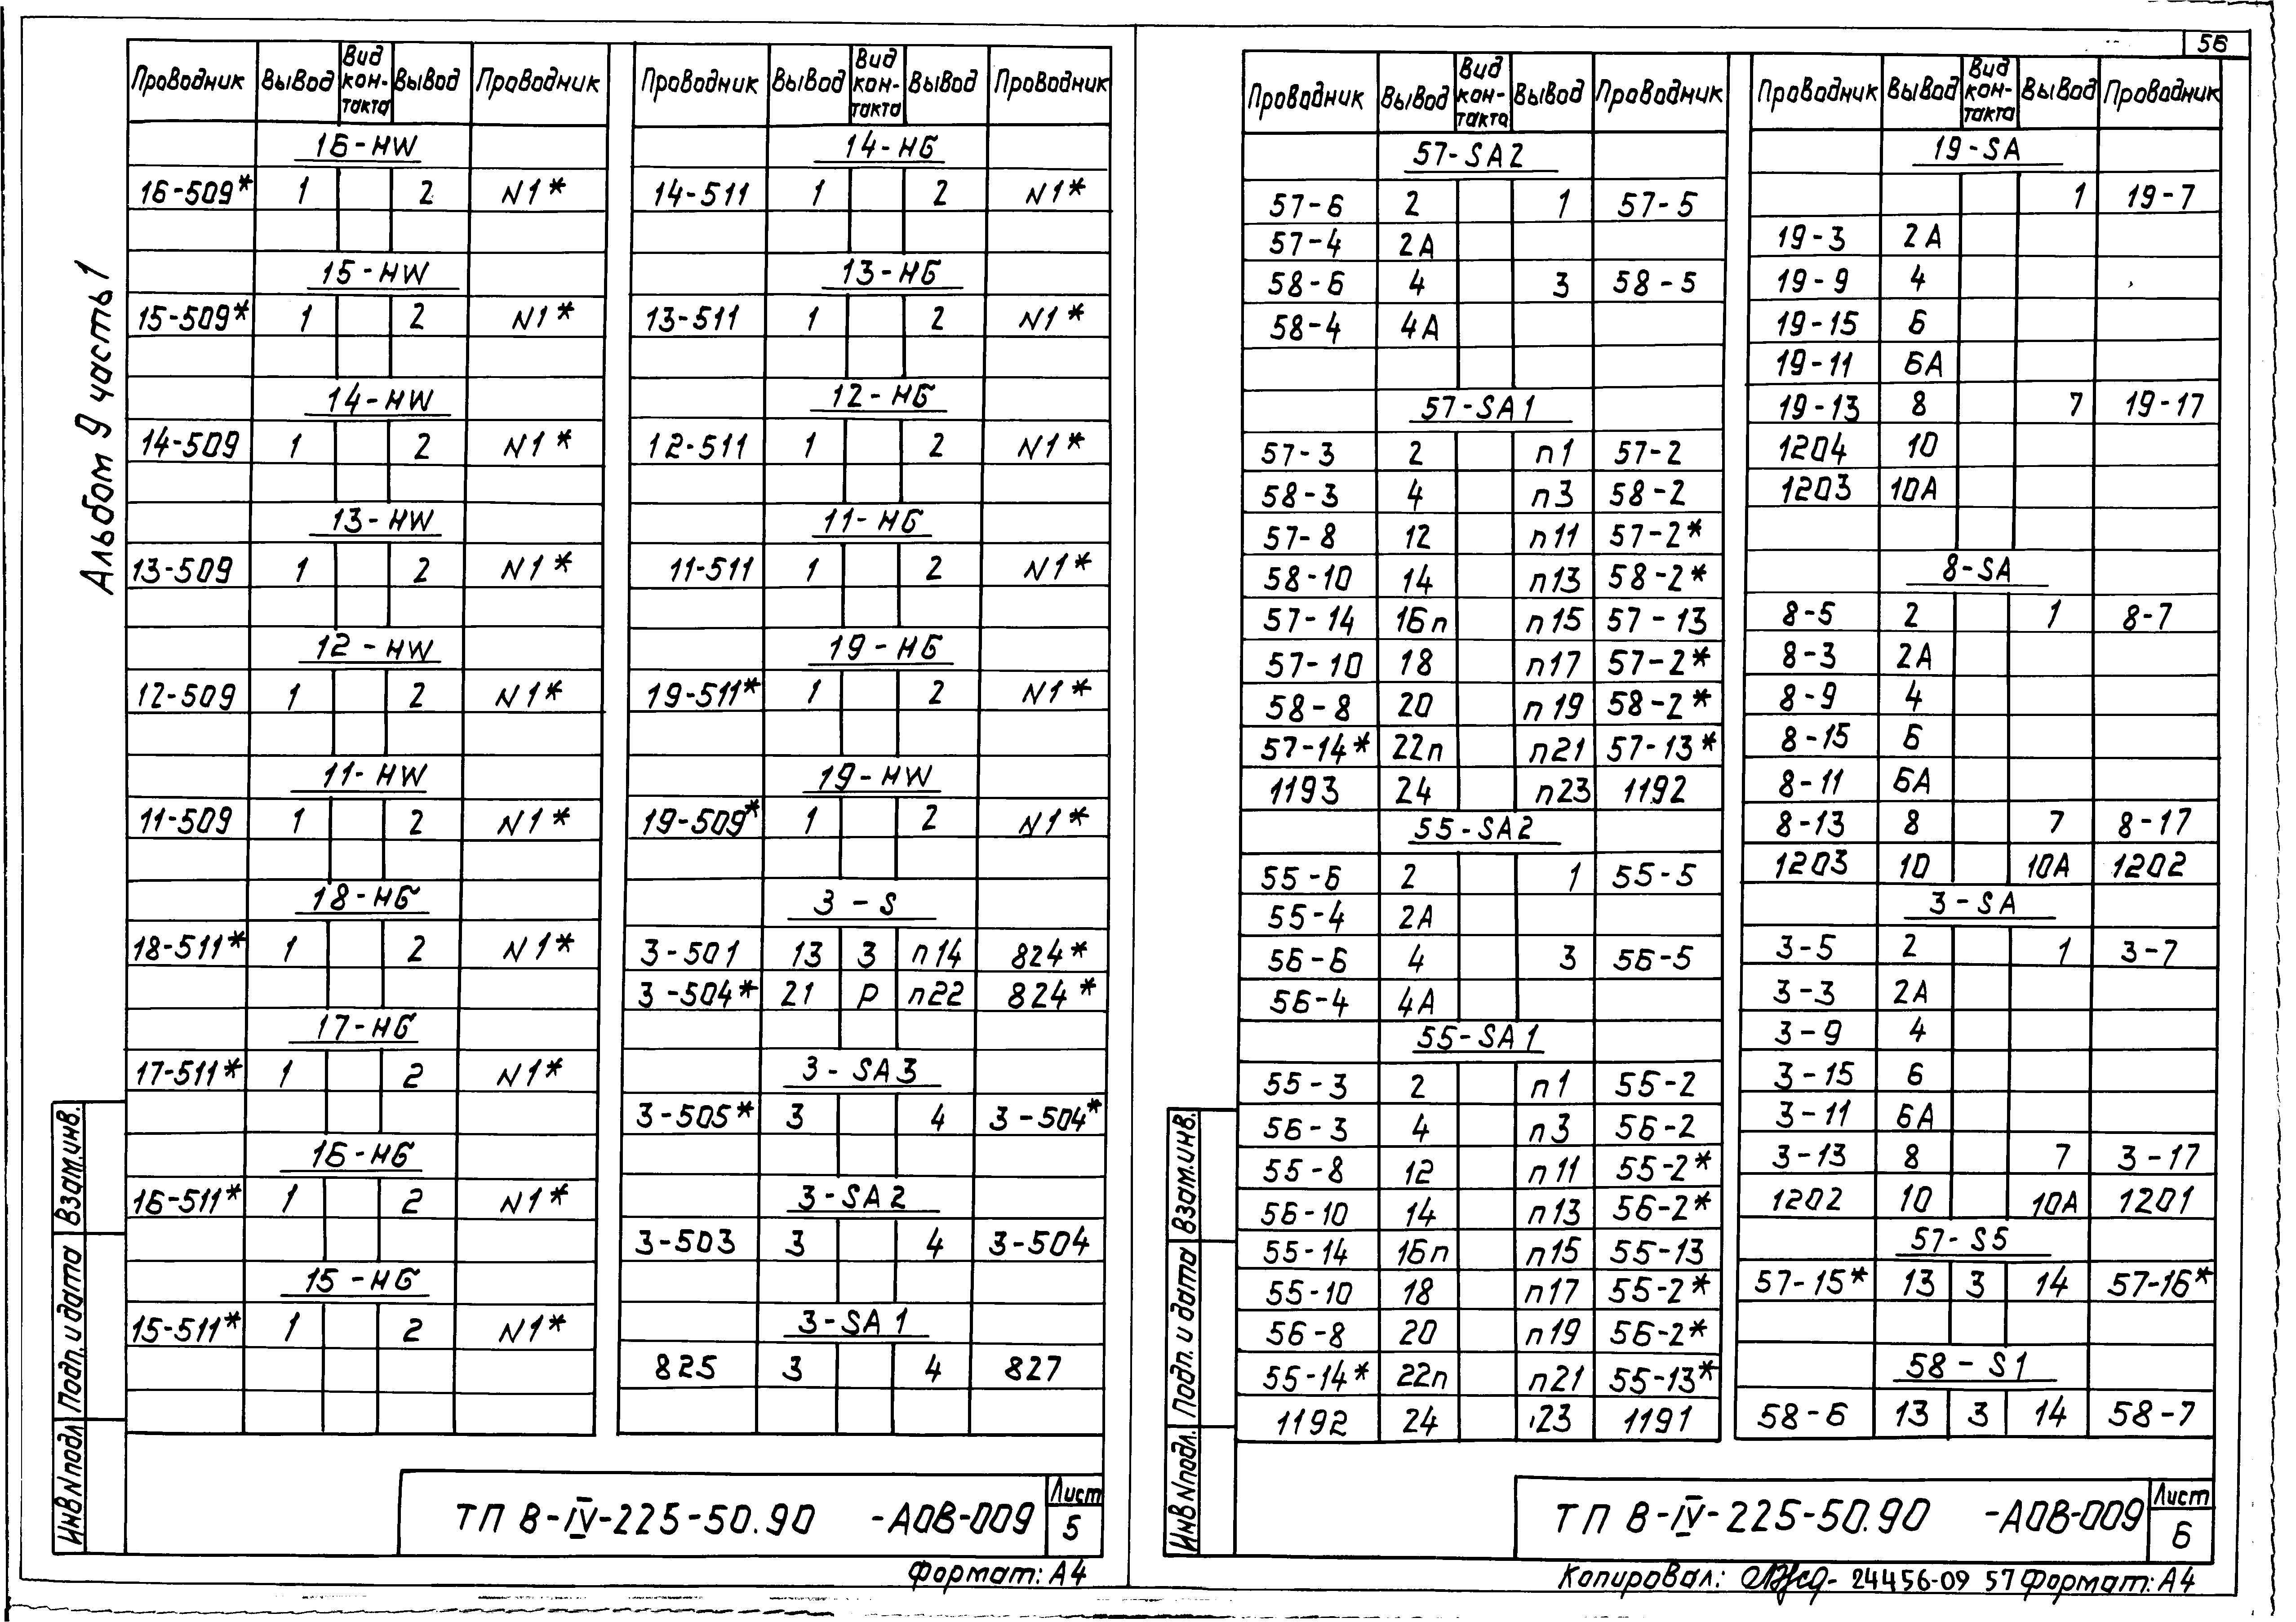 56
Альбом 9 часть 1
Проводник Вывод Вид контакта Вывод Проводник
16-HW
16-509* 1 2 N1*
15-HW
15-509* 1 2 N1*
14-HW
14-509 1 2 N1*
13-HW
13-509 1 2 N1*
12-HW
12-509 1 2 N1*
11-HW
11-509 1 2 N1*
18-HG
18-511* 1 2 N1*
17-HG
17-511* 1 2 N1*
16-HG
16-511* 1 2 N1*
15-HG
15-511* 1 2 N1*
Проводник Вывод Вид контакта Вывод Проводник
14-HG
14-511 1 2 N1*
13-HG
13-511 1 2 N1*
12-HG
12-511 1 2 N1*
11-HG
11-511 1 2 N1*
19-HG
19-511* 1 2 N1*
19-HW
19-509* 1 2 N1*
3-S
3-501 13 З п14 824*
3-504* 21 Р п22 824*
3-SA3
3-505* 3 4 3-504*
3-SA2
3-503 3 4 3-504
3-SA1
825 3 4 827
Взам.инв.
Подп. и дата
Инв N подл
ТП В-IV-225-50.90 -АОВ-009
Лист
5
Формат: А4
Проводник Вывод Вид контакта Вывод Проводник
57-SA2
57-6 2 1 57-5
57-4 2А
58-6 4 3 58-5
58-4 4А
57-SA1
57-3 2 п1 57-2
58-3 4 п3 58-2
57-8 12 п11 57-2*
58-10 14 п13 58-2*
57-14 16п п15 57-13
57-10 18 п17 57-2*
58-8 20 п19 58-2*
57-14* 22п п21 57-13*
1193 24 п23 1192
55-SA2
55-6 2 1 55-5
55-4 2А
56-6 4 3 56-5
56-4 4А
55-SA1
55-3 2 п1 55-2
56-3 4 п3 56-2
55-8 12 п11 55-2*
56-10 14 п13 56-2*
55-14 16п п15 55-13
55-10 18 п17 55-2*
56-8 20 п19 56-2*
55-14* 22п п21 55-13*
1192 24 23 1191
Проводник Вывод Вид контакта Вывод Проводник
19-SA
1 19-7
19-3 2А
19-9 4
19-15 6
19-11 6А
19-13 8 7 19-17
1204 10
1203 10А
8-SA
8-5 2 1 8-7
8-3 2А
8-9 4
8-15 6
8-11 6А
8-13 8 7 8-17
1203 10 10А 1202
3-SA
3-5 2 1 3-7
3-3 2А
3-9 4
3-15 6
3-11 6А
3-13 8 7 3-17
1202 10 10А 1201
57-S5
57-15* 13 З 14 57-16*
58-S1
58-6 13 З 14 58-7
Взам.инв.
Подп. и дата
Инв N подл.
ТП В-IV-225-50.90 -АОВ-009
Лист
6
Копировал: 24456-09 57 Формат: А4